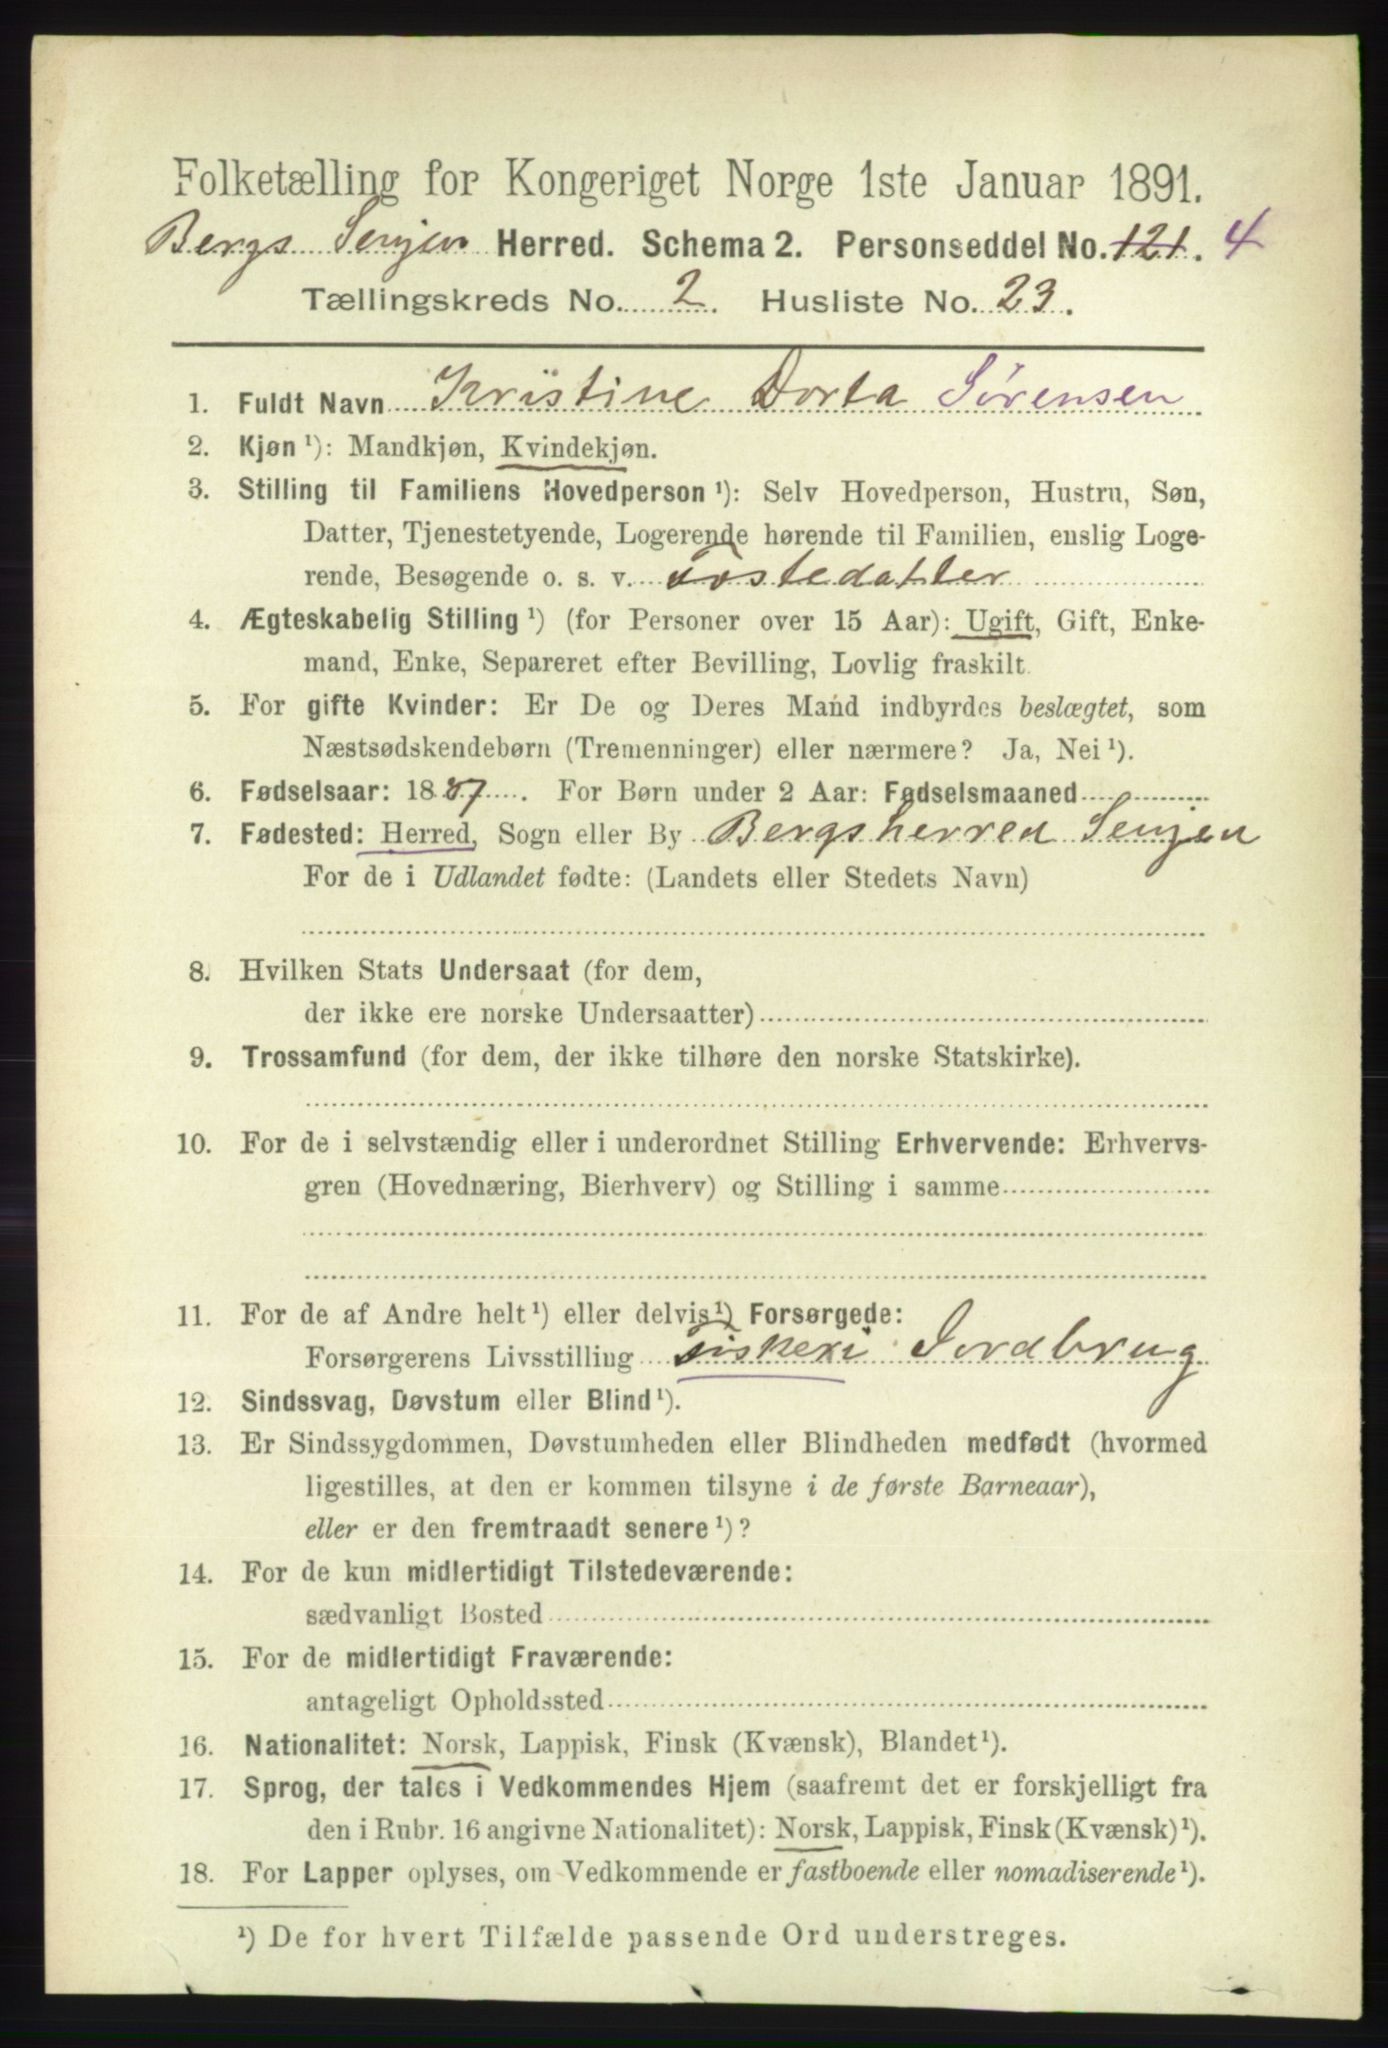 Folketælling for Kongeriget Norge 1ste Januar 1891.
Bergs Senjen Herred. Schema 2. Personseddel No. 121. 4
Tællingskreds No. 2. Husliste No. 23.
1. Fuldt Navn Kristine Dorta Sørensen
2. Kjøn ¹): Mandkjøn, Kvindekjøn.
3. Stilling til Familiens Hovedperson ¹): Selv Hovedperson, Hustru, Søn,
Datter, Tjenestetyende, Logerende hørende til Familien, enslig Loge-
rende, Besøgende o. s. v. Fostedatter
4. Ægteskabelig Stilling ¹) (for Personer over 15 Aar): Ugift, Gift, Enke-
mand, Enke, Separeret efter Bevilling, Lovlig fraskilt.
5. For gifte Kvinder: Er De og Deres Mand indbyrdes beslægtet, som
Næstsødskendebørn (Tremenninger) eller nærmere? Ja, Nei ¹).
6. Fødselsaar: 1887. For Børn under 2 Aar: Fødselsmaaned
7. Fødested: Herred, Sogn eller By Bergsherred Senjen
For de i Udlandet fødte: (Landets eller Stedets Navn)
8. Hvilken Stats Undersaat (for dem,
der ikke ere norske Undersaatter)
9. Trossamfund (for dem, der ikke tilhøre den norske Statskirke).
10. For de i selvstændig eller i underordnet Stilling Erhvervende: Erhvervs-
gren (Hovednæring, Bierhverv) og Stilling i samme
11. For de af Andre helt ¹) eller delvis ¹) Forsørgede:
Forsørgerens Livsstilling Fiskeri Jordbrug
12. Sindssvag, Døvstum eller Blind ¹).
13. Er Sindssygdommen, Døvstumheden eller Blindheden medfødt (hvormed
ligestilles, at den er kommen tilsyne i de første Barneaar),
eller er den fremtraadt senere ¹)?
14. For de kun midlertidigt Tilstedeværende:
sædvanligt Bosted
15. For de midlertidigt Fraværende:
antageligt Opholdssted
16. Nationalitet: Norsk, Lappisk, Finsk (Kvænsk), Blandet ¹).
17. Sprog, der tales i Vedkommendes Hjem (saafremt det er forskjelligt fra
den i Rubr. 16 angivne Nationalitet): Norsk, Lappisk, Finsk (Kvænsk) ¹).
18. For Lapper oplyses, om Vedkommende er fastboende eller nomadiserende ¹).
¹) De for hvert Tilfælde passende Ord understreges.